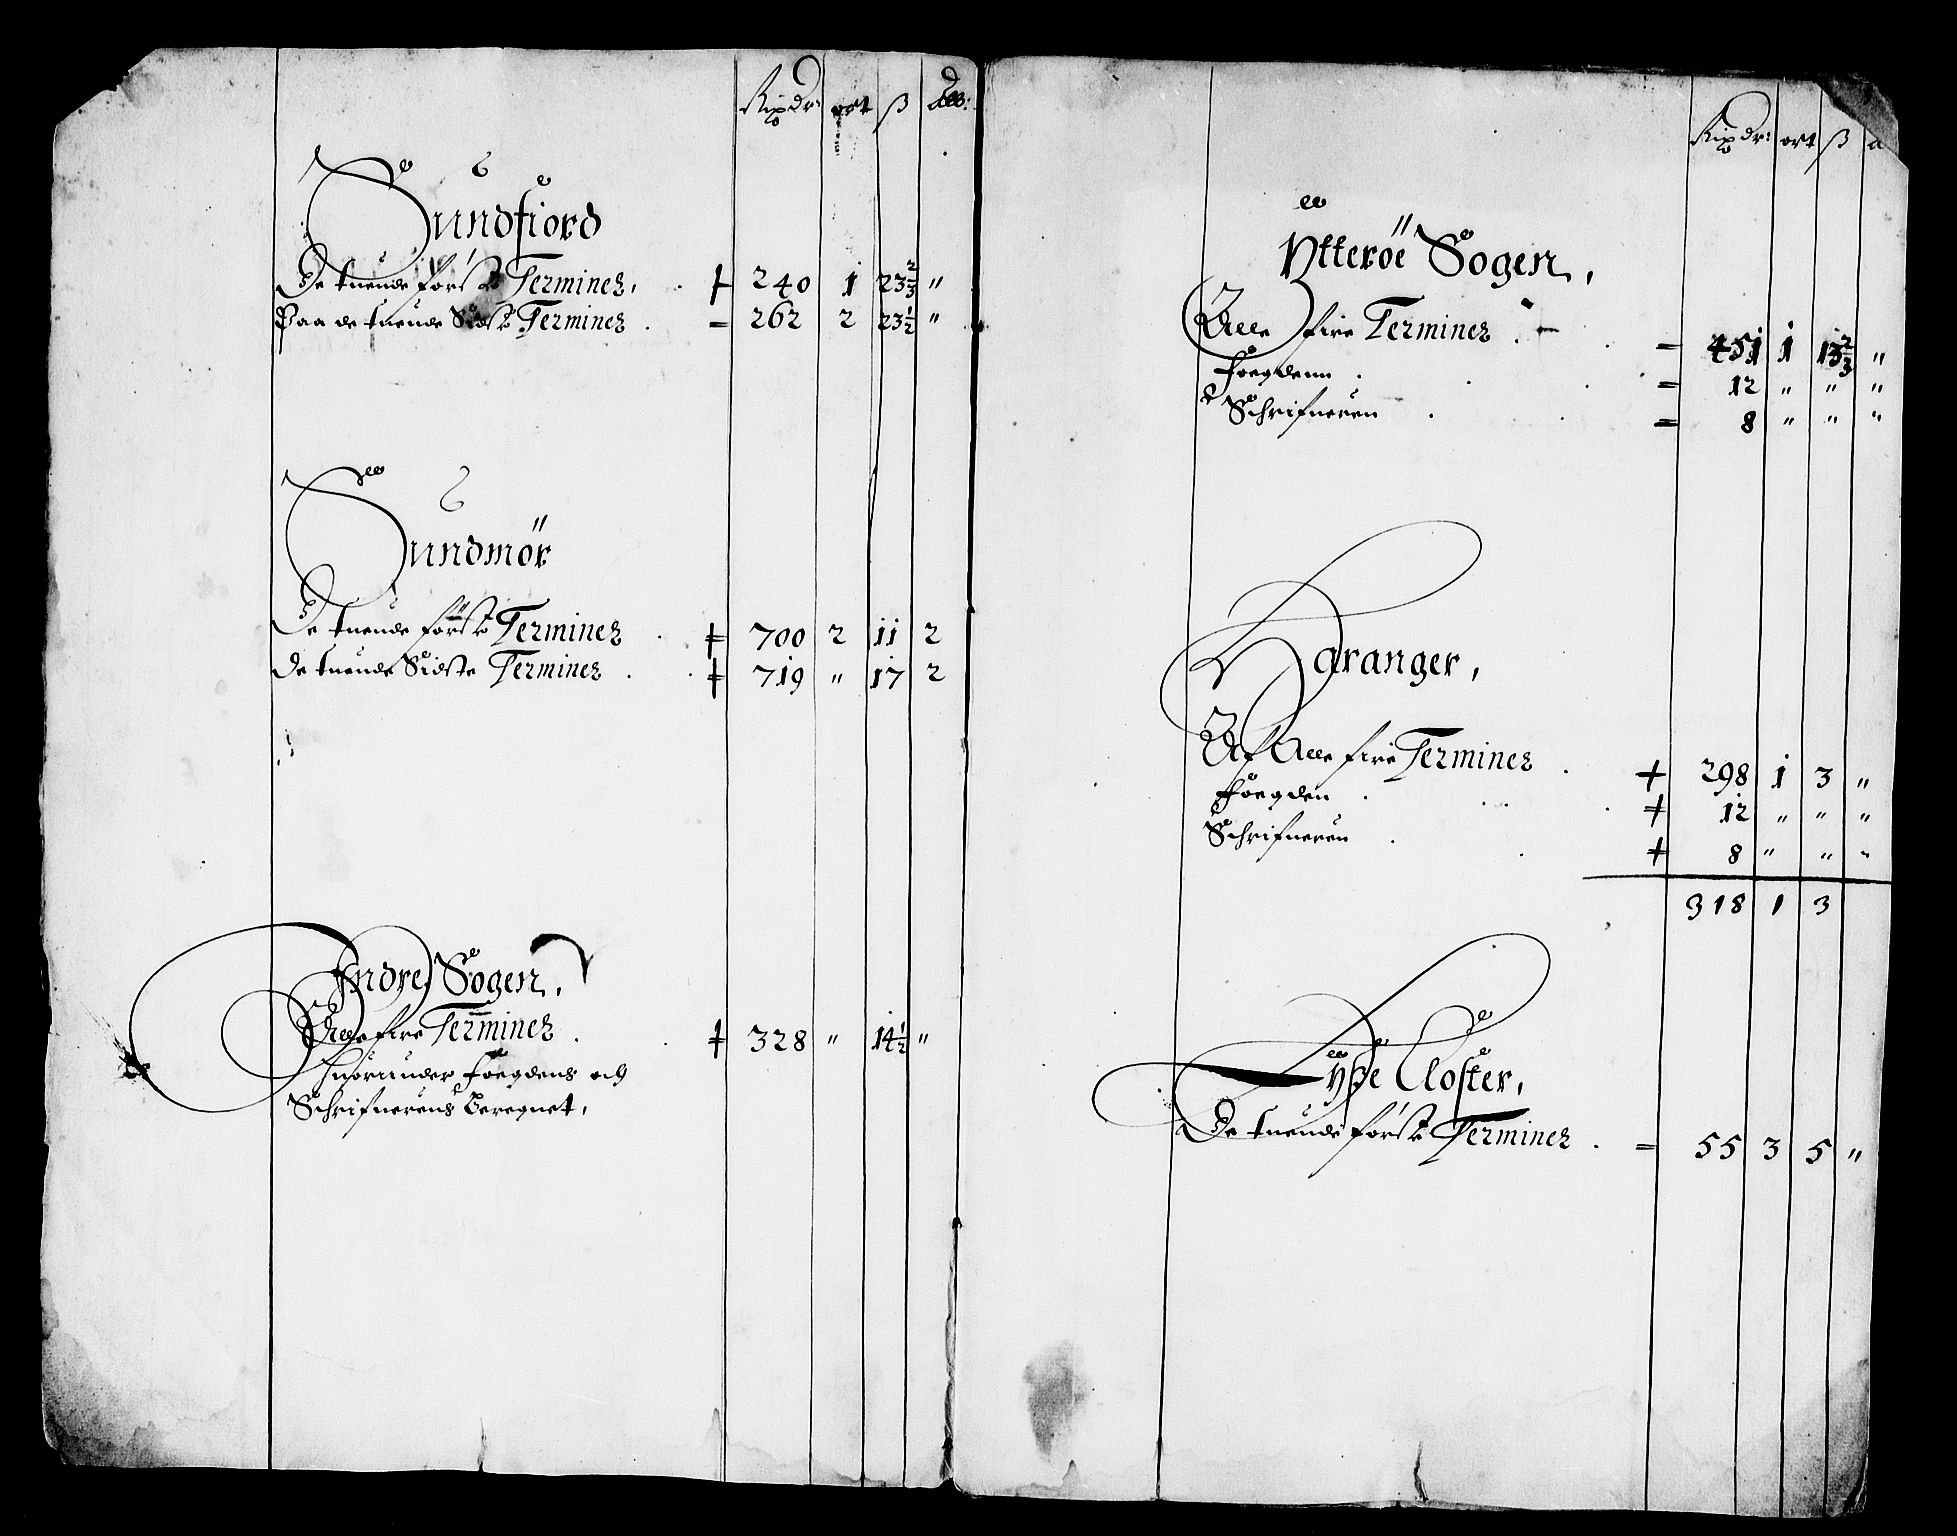 Rixdr: ort ß
Sundfiord
De tuende først Terminer, 240 1 23 2/3 "
Paa de tuende Sidst Terminer 262 2 23 1/2 "
Sundmör
De tuende först Terminer 700 2 11 2
De tuende Sidste Terminer 719 " 17 2
Indre Sogen,
Alle fire Terminer 328 " 14 1/2 "
Huorunder Foegdens och
Schrifuerens Beregnet,
Rixdr: ort ß
Ytteröe Sogen,
Alle fire Terminer = 451 1 13 2/3 "
Foegdenn = 12 " " "
Schrifueren = 8 " " "
Haranger,
Af Alle fire Terminer + 298 1 3 "
Foegden + 12 " " "
Schrifueren + 8 " " "
318 1 3
Lyße Closter,
De tuende först Terminer = 55 3 5 "